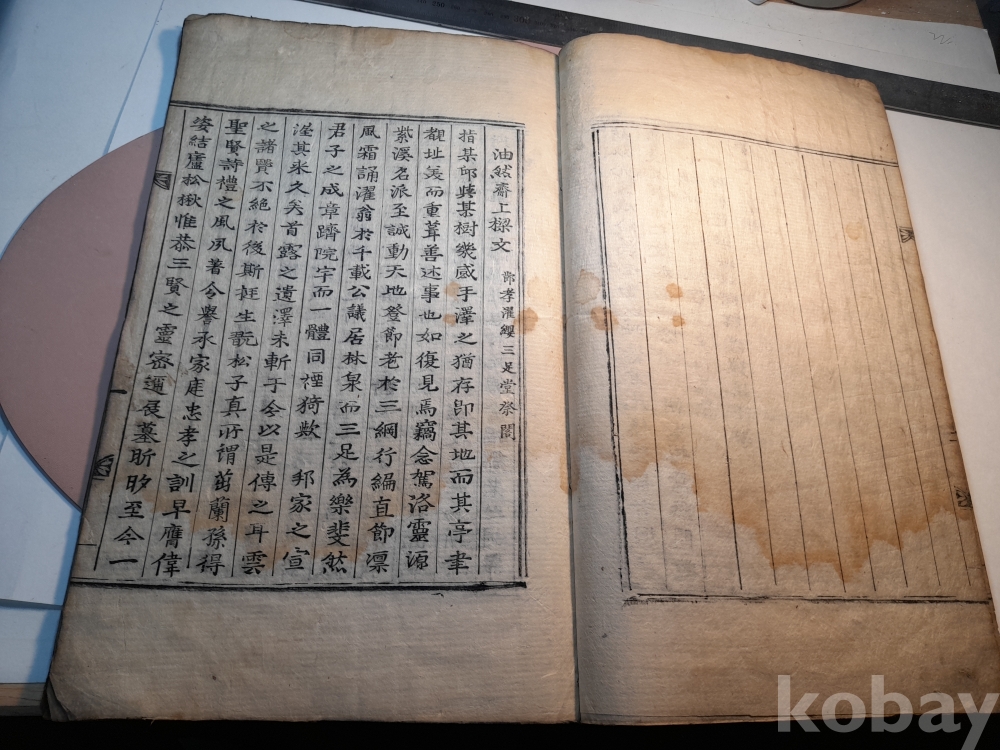 油然齋上樑文 節孝濯纓三足堂祭閣
指某邱與某樹幾感手澤之猶存卽其地而其亭聿
覩址爰而重葺善述事也如復見焉竊念駕洛靈源
紫溪名派至誠動天地簦節老於三綱行編直節凛
風霜誦濯翁於千載公議居林泉而三足為樂斐然
君子之成章躋院宇而一體同禋猗歟 邦家之宣
瀅其來久矣首露之遺澤未斬于今以是傳之耳雲
之諸賢不絶於後斯挺生翫松子真所謂茁蘭孫得
聖賢詩禮之風夙著令譽承家庭忠孝之訓早膺偉
姿結廬松楸惟恭三賢之靈密邇展墓昕夕至今一
kobay